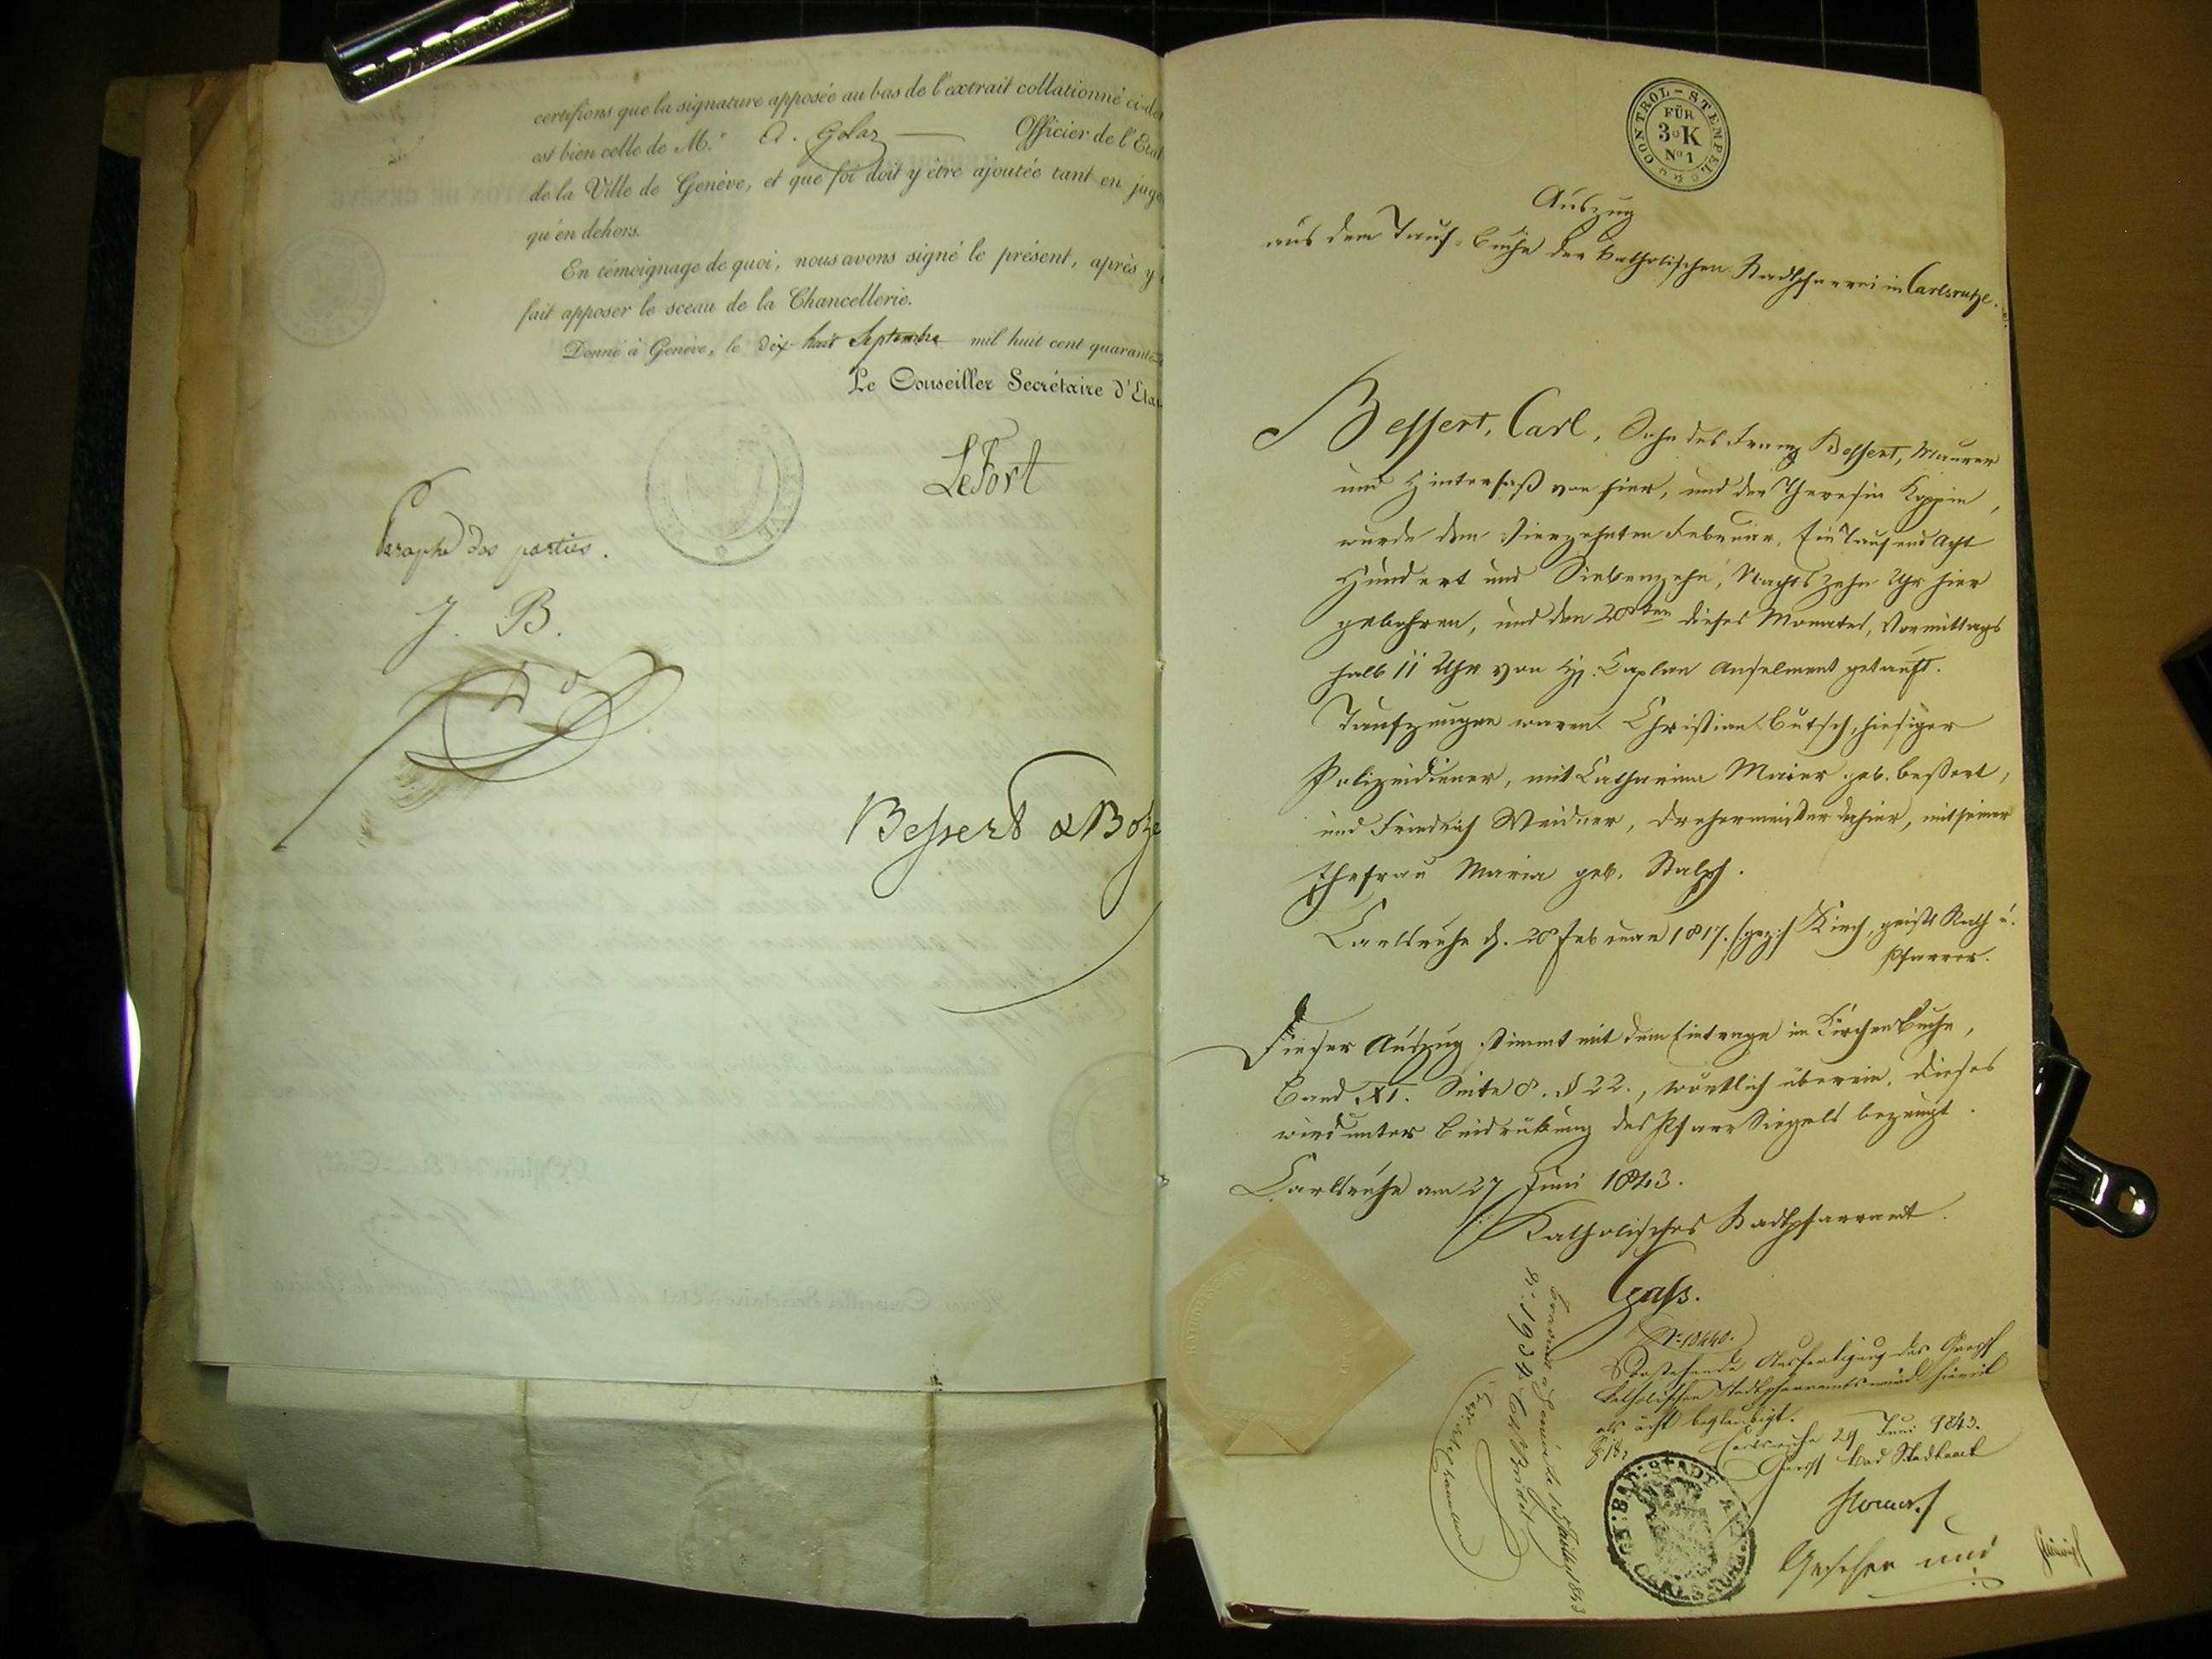 certifions que la signature apposée au bas de l'extrait collationné ci-de
est bien celle de M.r A. Golaz — Officier de l'Etat
de la Ville de Genève, et que foi doit y être ajoutée tant en juge
qu'en dehors.
En témoignage de quoi, nous avons signé le présent, après y
fait apposer le sceau de la Chancellerie.
Donné à Genève, le dix huit Septembre mil huit cent quarante
Le Conseiller Secrétaire d'Etat
LeFort
Paraphe des parties.
J. B.
Bessert & Boze
CONTROL-STEMPEL
FÜR
3 K
No 1
Auszug
aus dem Tauf-Buche der katholischen Stadtpfarrei in Carlsruhe.
Bessert, Carl, Sohn des Franz Bessert, Maurer
und Hintersaß von hier, und der Theresia Koppin,
wurde den Vierzehnten Februar, Ein Tausend Acht
Hundert und Siebenzehn, Nachts zehn Uhr hier
gebohren, und den 20sten dieses Monates, Vormittags
halb 11 Uhr von H. Caplan Anselment getauft.
Taufzeugen waren Christian Butsch, hiesiger
Polizeidiener, mit Catharina Maier geb. Beßert,
und Friedrich Weidner, Drehermeister dahier, mit seiner
Ehefrau Maria geb. Stalph.
Carlsruhe d. 20 Februar 1817. (gez.) Kirch, geistl. Rath u.
Pfarrer.
Dieser Auszug stimmt mit dem Eintrage im Kirchenbuche,
Band XI. Seite 8. § 22., wörtlich überein. Dieses
wird unter Beidrükung des Pfarrsiegels bezeugt.
Carlsruhe am 27 Juni 1843.
Katholisches Stadtpfarramt.
Gass.
No 10440.
Vorstehende Ausfertigung des Großh
katholischen Stadtpfarramts wird hiemit
als ächt beglaubigt.
Carlsruhe 29 Juni 1843.
Großh Bad Stadtamt
Gesehen und